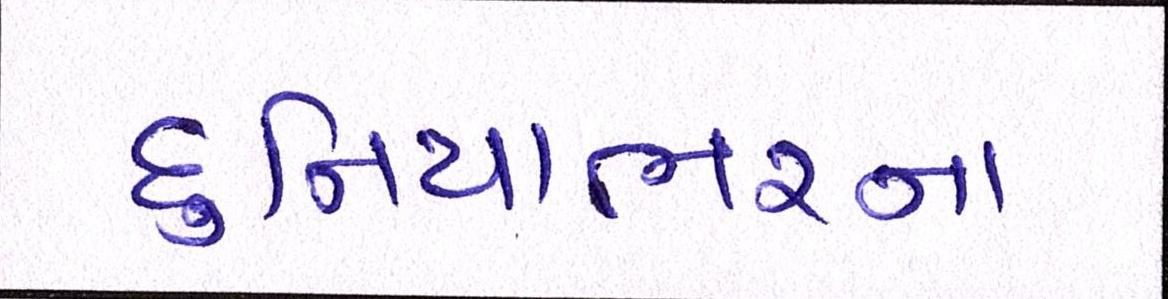 દુનિયાભરના